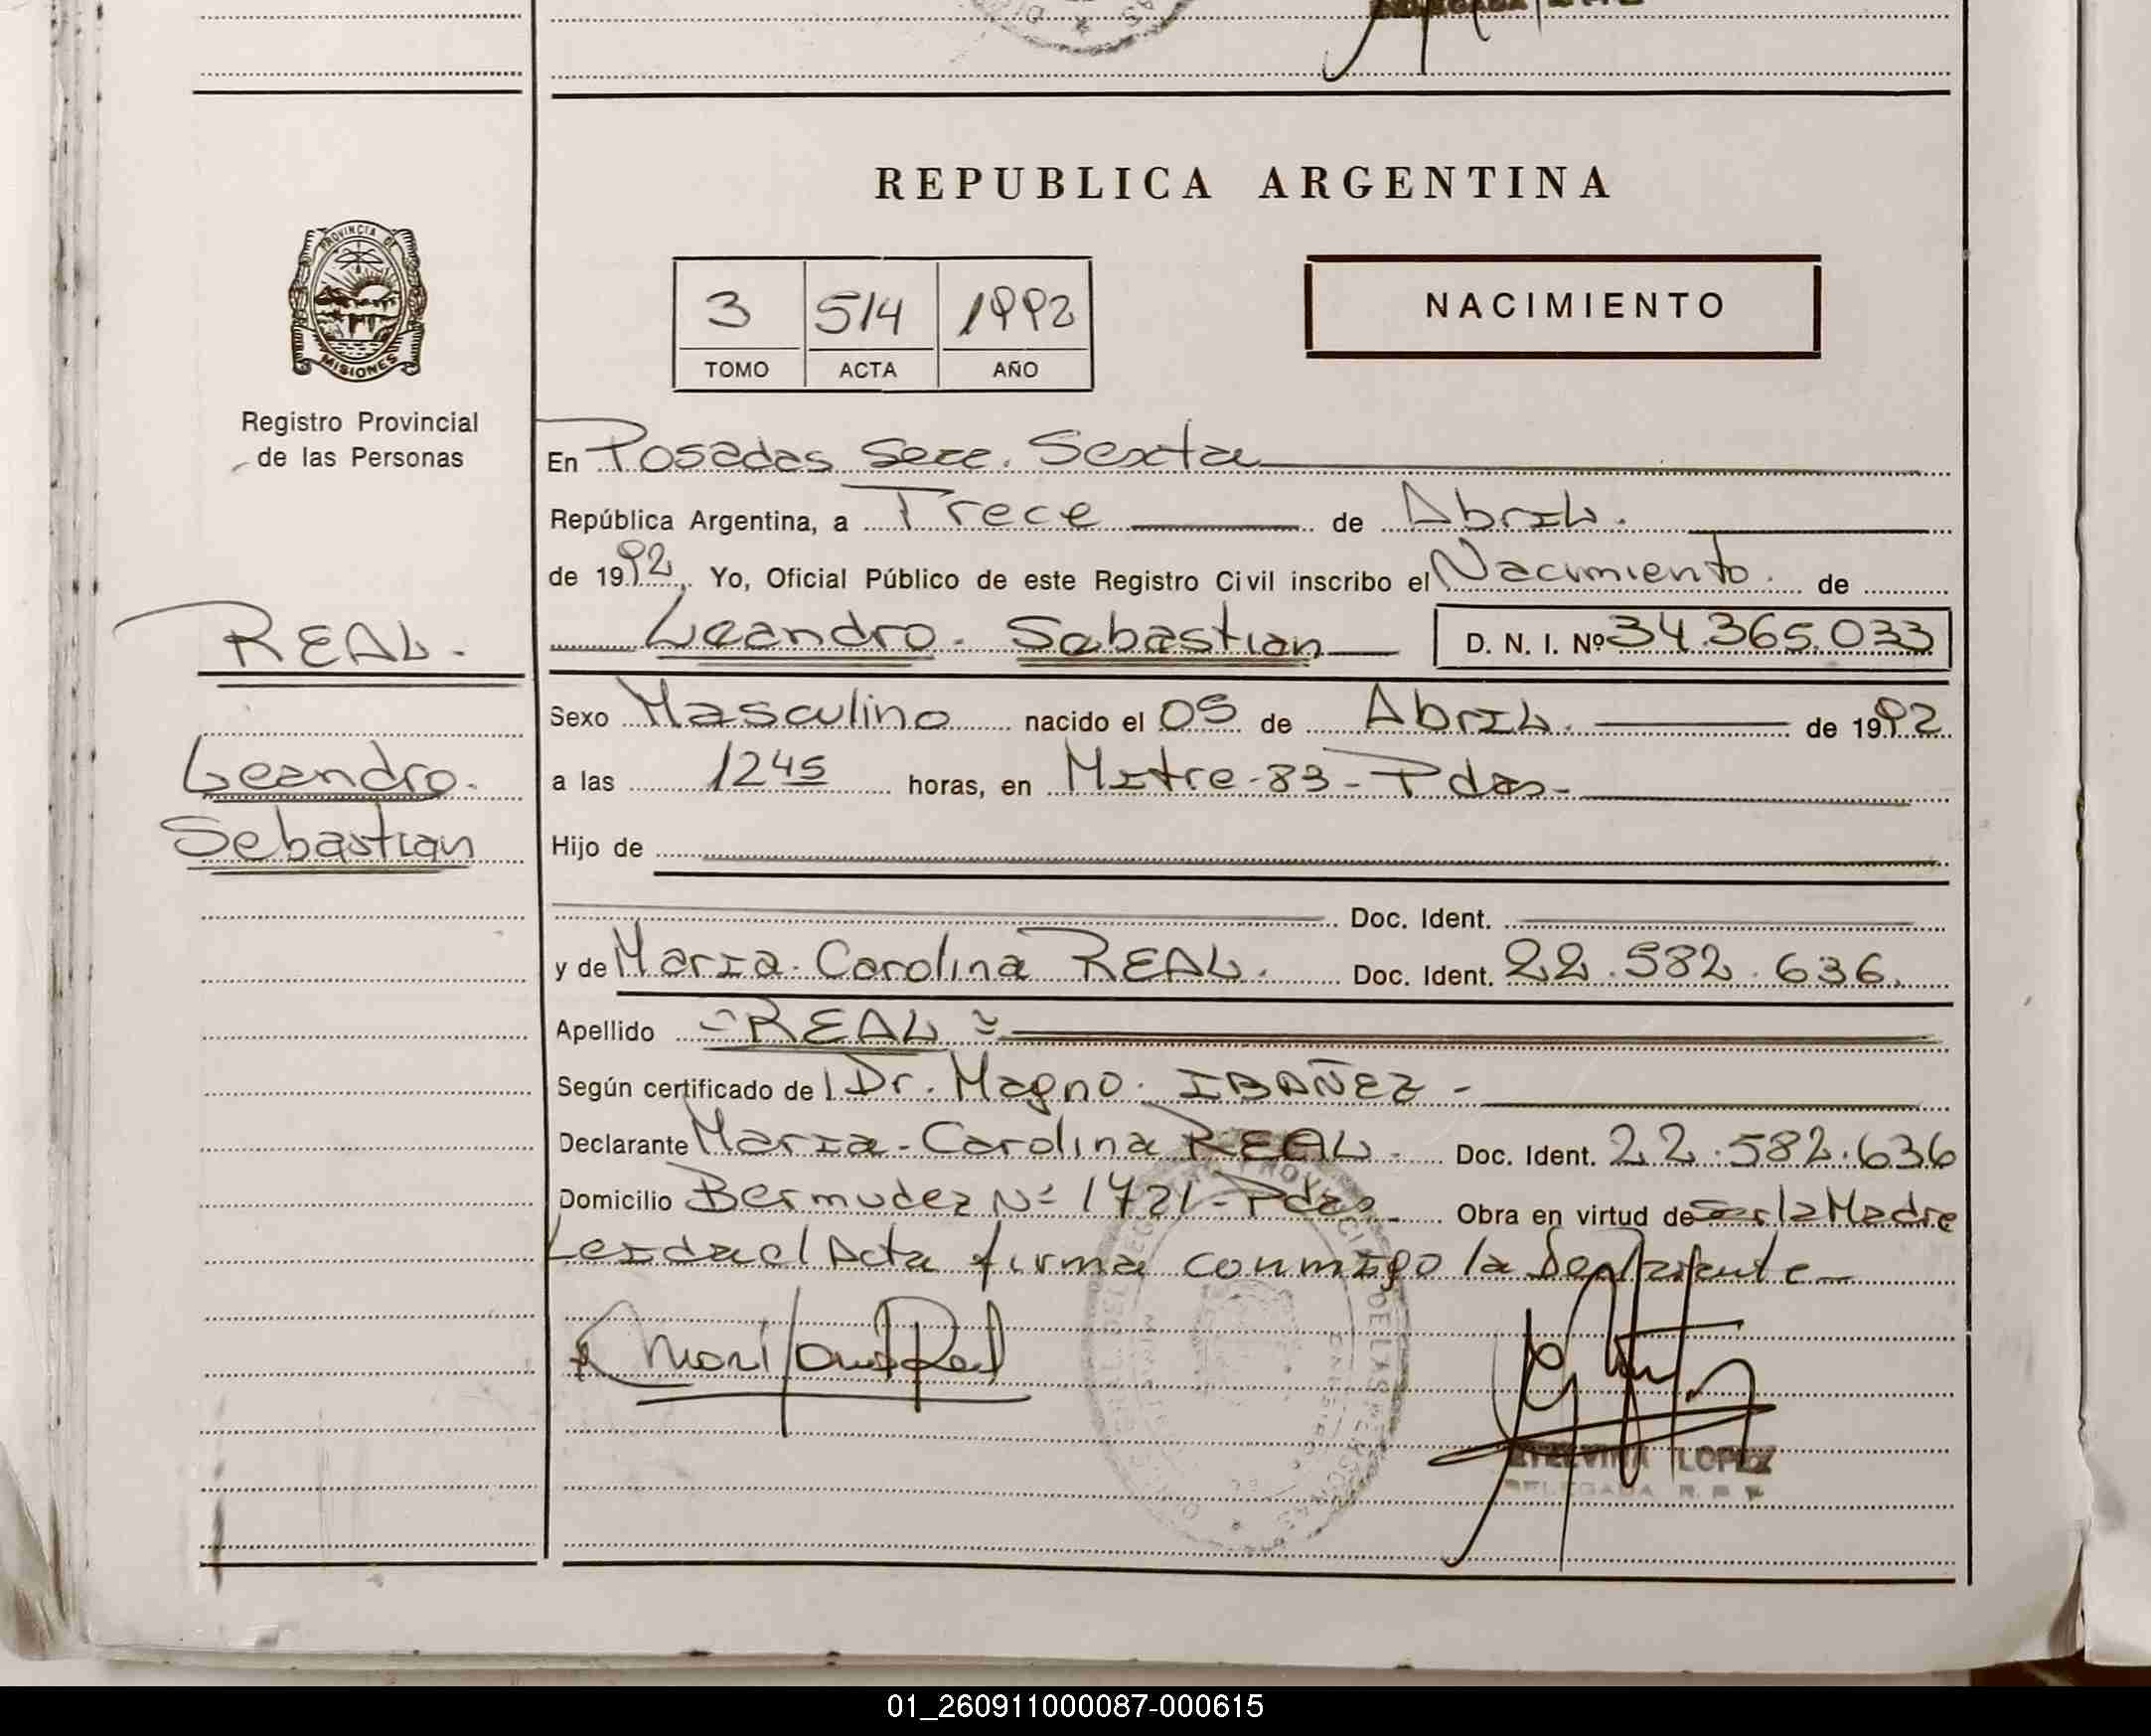 REPUBLICA ARGENTINA
PROVINCIA DE
MISIONES
3 514 1992
TOMO ACTA AÑO
NACIMIENTO
Registro Provincial
de las Personas
En Posadas Secc. Sexta
República Argentina, a Trece de Abril.
de 1992. Yo, Oficial Público de este Registro Civil inscribo el Nacimiento. de
REAL.
Leandro. Sebastian D. N. I. Nº 34.365.033
Sexo Masculino nacido el 05 de Abril. de 1992.
Leandro.
a las 12 45 horas, en Mitre-83-Pdas-
Sebastian
Hijo de
Doc. Ident.
y de Maria. Carolina REAL. Doc. Ident. 22.582.636.
Apellido =REAL=
Según certificado del Dr. Magno. IBAÑEZ -
Declarante Maria-Carolina REAL. Doc. Ident. 22.582.636
Domicilio Bermudez Nº 1721-Pdas. Obra en virtud de Ser la Madre
Leida el Acta firma conmigo la
LOPEZ
DELEGADA R. P. P.
01_260911000087-000615